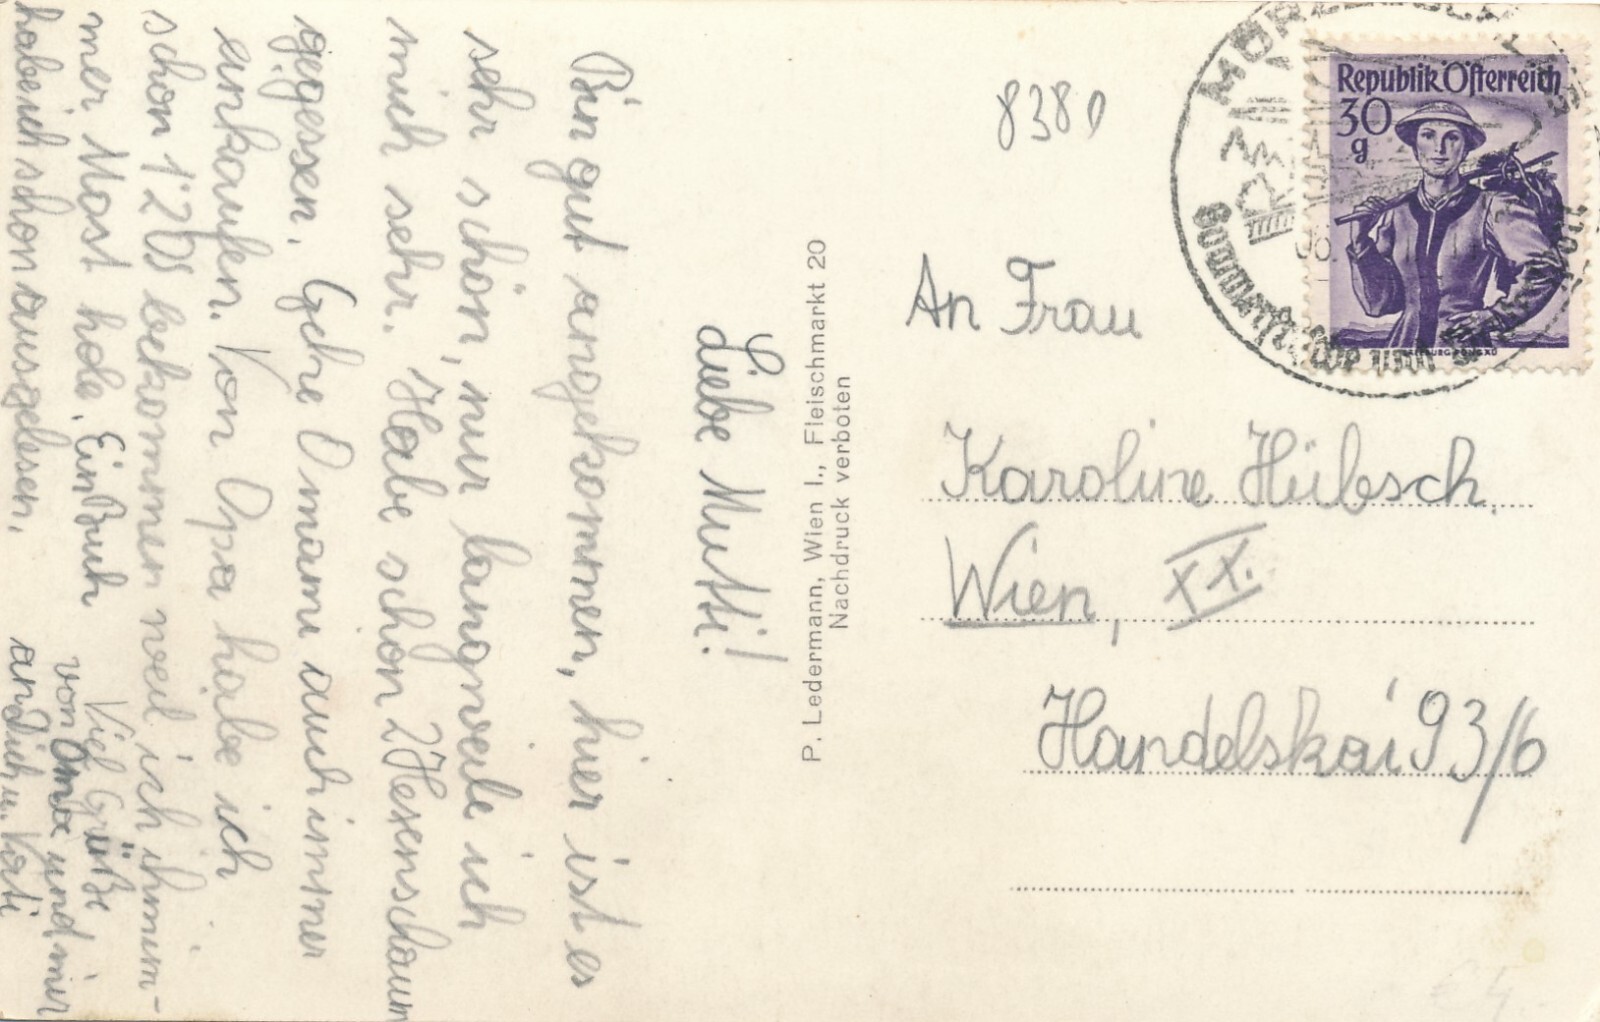 Liebe Mutti!
Bin gut angekommen, hier ist es
sehr schön, nur langweile ich
mich sehr. Habe schon 2 Hexenschaum
gegessen. Gehe Omami auch immer
einkaufen. Von Opa habe ich
schon 1'20S bekommen weil ich ihm im-
mer Most hole. Ein Buch
habe ich schon ausgelesen.
Viel Grüße
von Oma und mir
an Dich u. Vati
P. Ledermann, Wien I., Fleischmarkt 20
Nachdruck verboten
8380
Republik Österreich
30
g
An Frau
Karoline Hübsch
Wien, XX.
Handelskai 93/6
€ 4